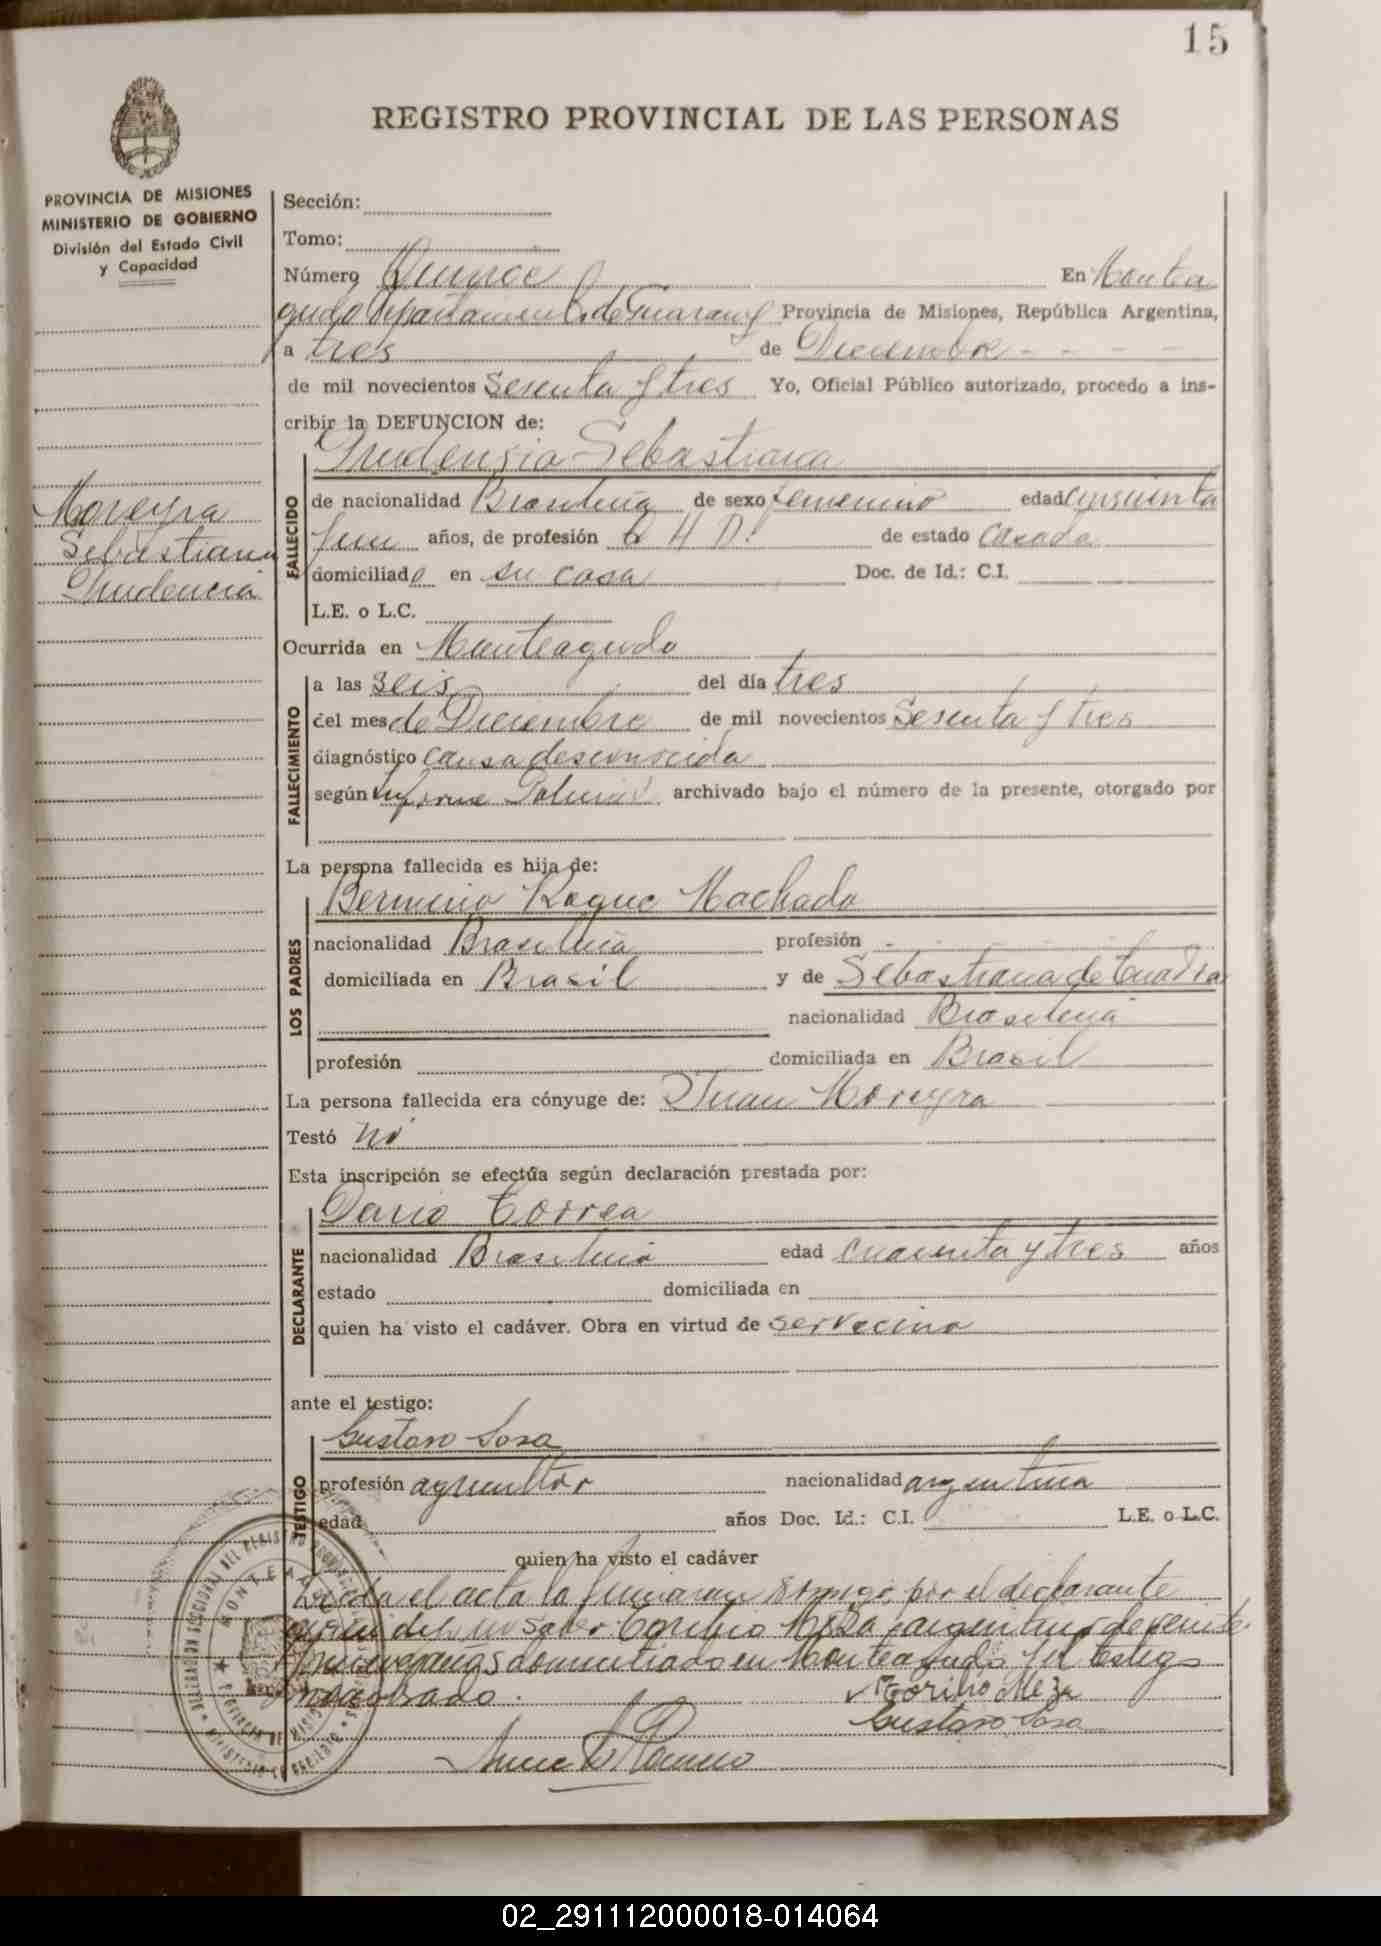 15
REGISTRO PROVINCIAL DE LAS PERSONAS
PROVINCIA DE MISIONES
MINISTERIO DE GOBIERNO
División del Estado Civil
y Capacidad
Sección:
Tomo:
Número Quince En Montea
gudo Departamento de Guarany Provincia de Misiones, República Argentina,
a tres de Diciembre
de mil novecientos Sesenta y tres Yo, Oficial Público autorizado, procedo a ins-
cribir la DEFUNCION de:
Prudensia Sebastiana
Moreyra
Sebastiana
Prudencia
FALLECIDO
de nacionalidad Brasileña de sexo femenino edad cinquinta
y un años, de profesión Q H D. de estado Casada
domiciliada en su casa Doc. de Id.: C.I.
L.E. o L.C.
Ocurrida en Monteagudo
FALLECIMIENTO
a las seis del día tres
del mes de Diciembre de mil novecientos Sesenta y tres
diagnóstico causa desconocida
según Informe Policial archivado bajo el número de la presente, otorgado por
La persona fallecida es hija de:
Roque Machado
LOS PADRES
nacionalidad Brasileña profesión
domiciliada en Brasil y de Sebastiana de
nacionalidad Brasileña
profesión domiciliada en Brasil
La persona fallecida era cónyuge de: Juan Moreyra
Testó No
Esta inscripción se efectúa según declaración prestada por:
Dario Correa
DECLARANTE
nacionalidad Brasileña edad cuarenta y tres años
estado domiciliada en
quien ha visto el cadáver. Obra en virtud de ser vecino
ante el testigo:
Gustavo Sosa
TESTIGO
profesión agricultor nacionalidad argentina
edad años Doc. Id.: C.I. L.E. o L.C.
quien ha visto el cadáver
el acta la firmaran conmigo, por el declarante
saber Toribio Meza argentino de veinte
nueve años domiciliado en Monteagudo y el testigo
nombrado.
Toribio Meza
Gustavo Sosa
MONTEAGUDO
02_291112000018-014064